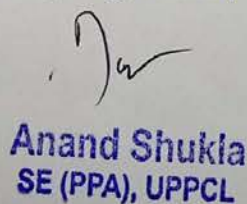 Anand Shukla
SE (PPA), UPPCL